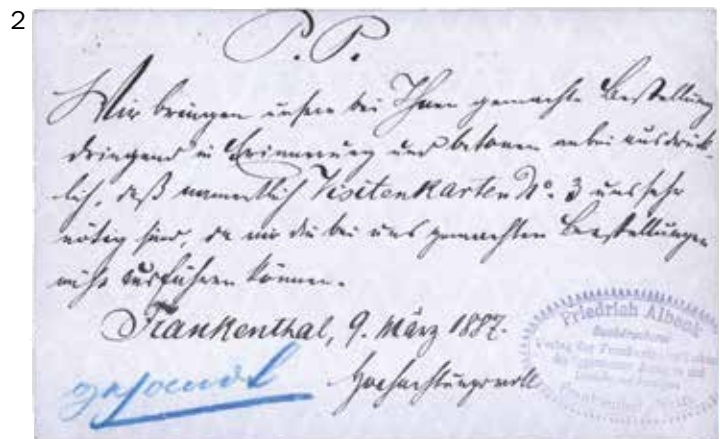 2
P. P.
Wir bringen unsere bei Ihnen gemachte Bestellung
dringend in Erinnerung und betonen anbei ausdrück-
lich, daß namentlich Visitenkarten No. 3 uns sehr
nötig sind, da wir die bei uns gemachten Bestellungen
nicht ausführen können.
Frankenthal, 9. März 1887.
Hochachtungsvoll
gesandt
Friedrich Albeck
Buchdruckerei